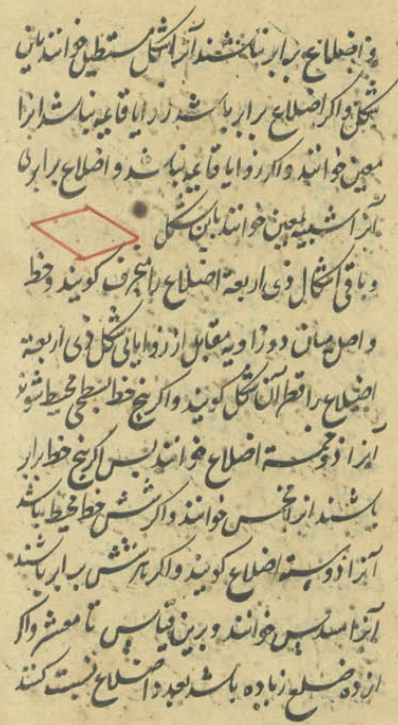 و اضلاع برابر نباشند آنرا شکل مستطیل خوانند باین
شکل و اگر اضلاع برابر باشد و زوایا قایمه نباشد انرا
معین خوانند و اگر زوایا قایمه نباشد و اضلاع برابر نی
آنرا شبیه معین خوانند باین شکل
و باقی اشکال ذی اربعة اضلاع را منحرف کویند و خط
واصل میان دو زاویه مقابل از زوایای شکل ذی اربعة
اضلاع را قطر آن شکل کویند و اگر پنج خط بسطحی محیط شوند
آنرا ذو خمسة اضلاع خوانند پس اگر پنج خط برابر
باشند انرا مخمس خوانند و اگر شش خط محیط باشد
آنرا ذو ستة اضلاع کویند و اگر هر شش برابر باشد
آنرا مسدس خوانند و برین قیاس تا معشر و اگر
از ده ضلع زیاده باشد بعدد اضلاع نسبت کنند